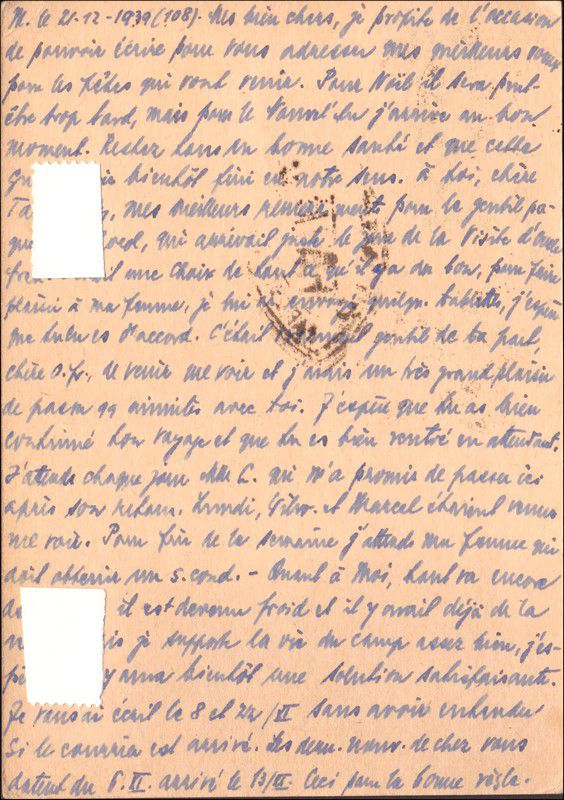 M. le 21-12-1939 (108). Mes bien chers, je profite de l'occasion
de pouvoir écrire pour vous adresser mes meilleurs vœux
pour les fêtes qui vont venir. Pour Noël il sera peut-
être trop tard, mais pour le Nouvel'an j'arrive au bon
moment. Restez tous en bonne santé et que cette
bientôt fini en notre sens. à toi, chère
Ta mes meilleurs pour le gentil pa-
qui arrivait juste le jour de la Visite d'
une choix de tout ce qu'il y a du bon, pour faire
plaisir à ma femme, je lui ai envoyé quelqu. tablettes, j'espère
que tu en es d'accord. C'était gentil de ta part,
chère O.fr., de venir me voir et j'avais un très grand plaisir
de passer qq minutes avec toi. J'espère que tu as bien
continué ton voyage et que tu es bien rentré en attendant.
J'attends chaque jour Mlle C. qui m'a promis de passer ici
après son retour. Lundi, et Marcel étaient venus
me voir. Pour fin de la semaine j'attends ma femme qui
doit obtenir un s. cond. - Quant à Moi, tout va encore
il est devenu froid et il y avait déjà de la
je supporte la vie du camp assez bien, j'es-
y aura bientôt une solution satisfaisante.
Je vous ai écrit le 8 et 22/XI sans avoir entendu
si le courrier est arrivé. Les dern. nouv. de chez vous
datent du arrivé le Ceci pour la bonne règle.